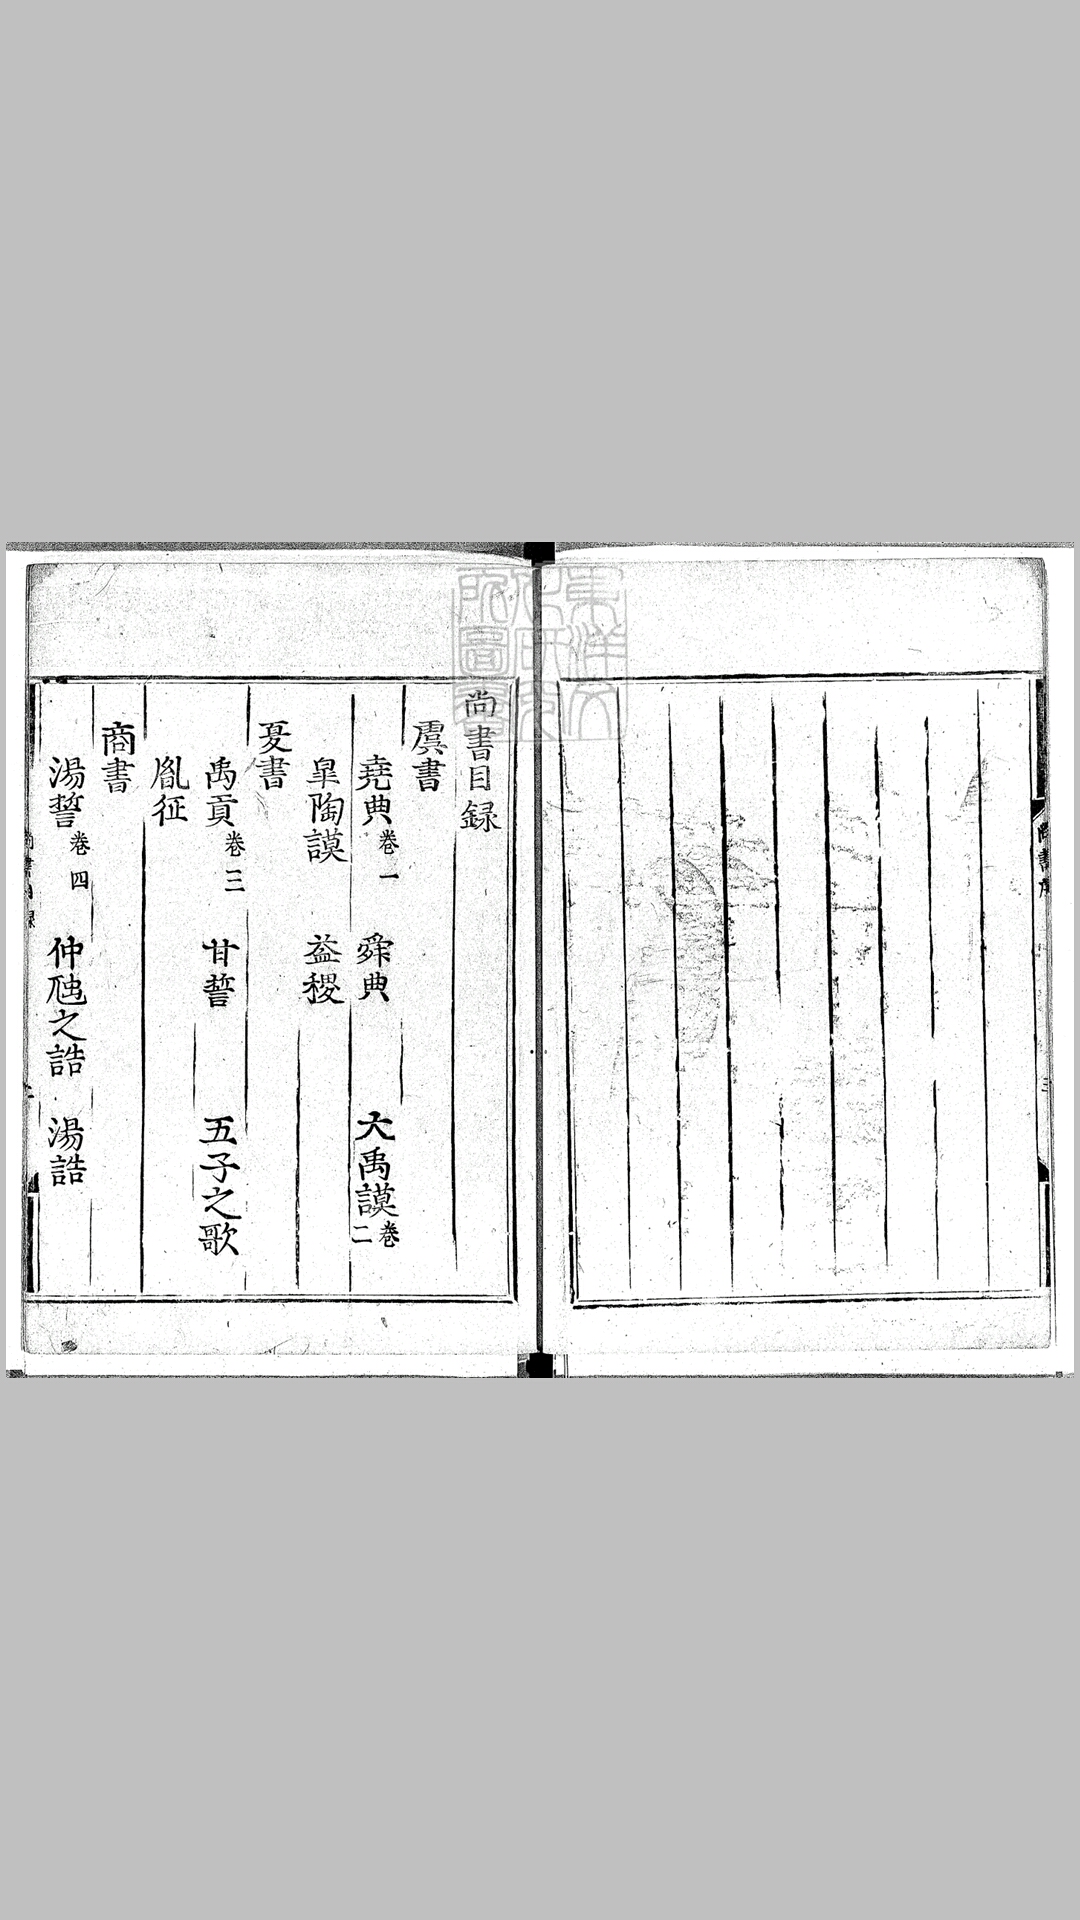 尚書目録
虞書
堯典 卷一 舜典 大禹謨 卷二
皐陶謨 益稷
夏書
禹貢 卷三 甘誓 五子之歌
胤征
商書
湯誓 卷四 仲虺之誥 湯誥